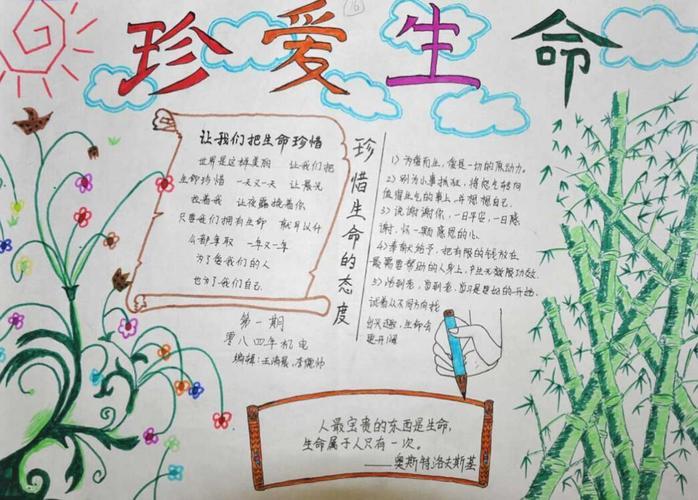 16
珍爱生命
让我们把生命珍惜
世界是这样美丽 让我们把
生命珍惜 一天又一天 让晨光
拉着我 让夜露挽着你
只要我们拥有生命 就可以什
么都争取 一年又一年
为了爱我们的人
也为了我们自己
第一期
零八四年机电
编辑：王
珍惜生命的态度
1）为信而生，信是一切的原动力。
2）别为小事抓狂，将怨气转向
值得生气的事上，并想想自己
3）说谢谢你，一日平安，一日感
谢，怀一颗感恩的心。
4）奉献给予，把有限的钱放在
最需要帮助的人身上，产生无数限功效。
5）活到老，学到老，学习是
试着从不同方向找
出兴趣，生命会
更开阔
人最宝贵的东西是生命，
生命属于人只有一次。
——奥斯特洛夫斯基